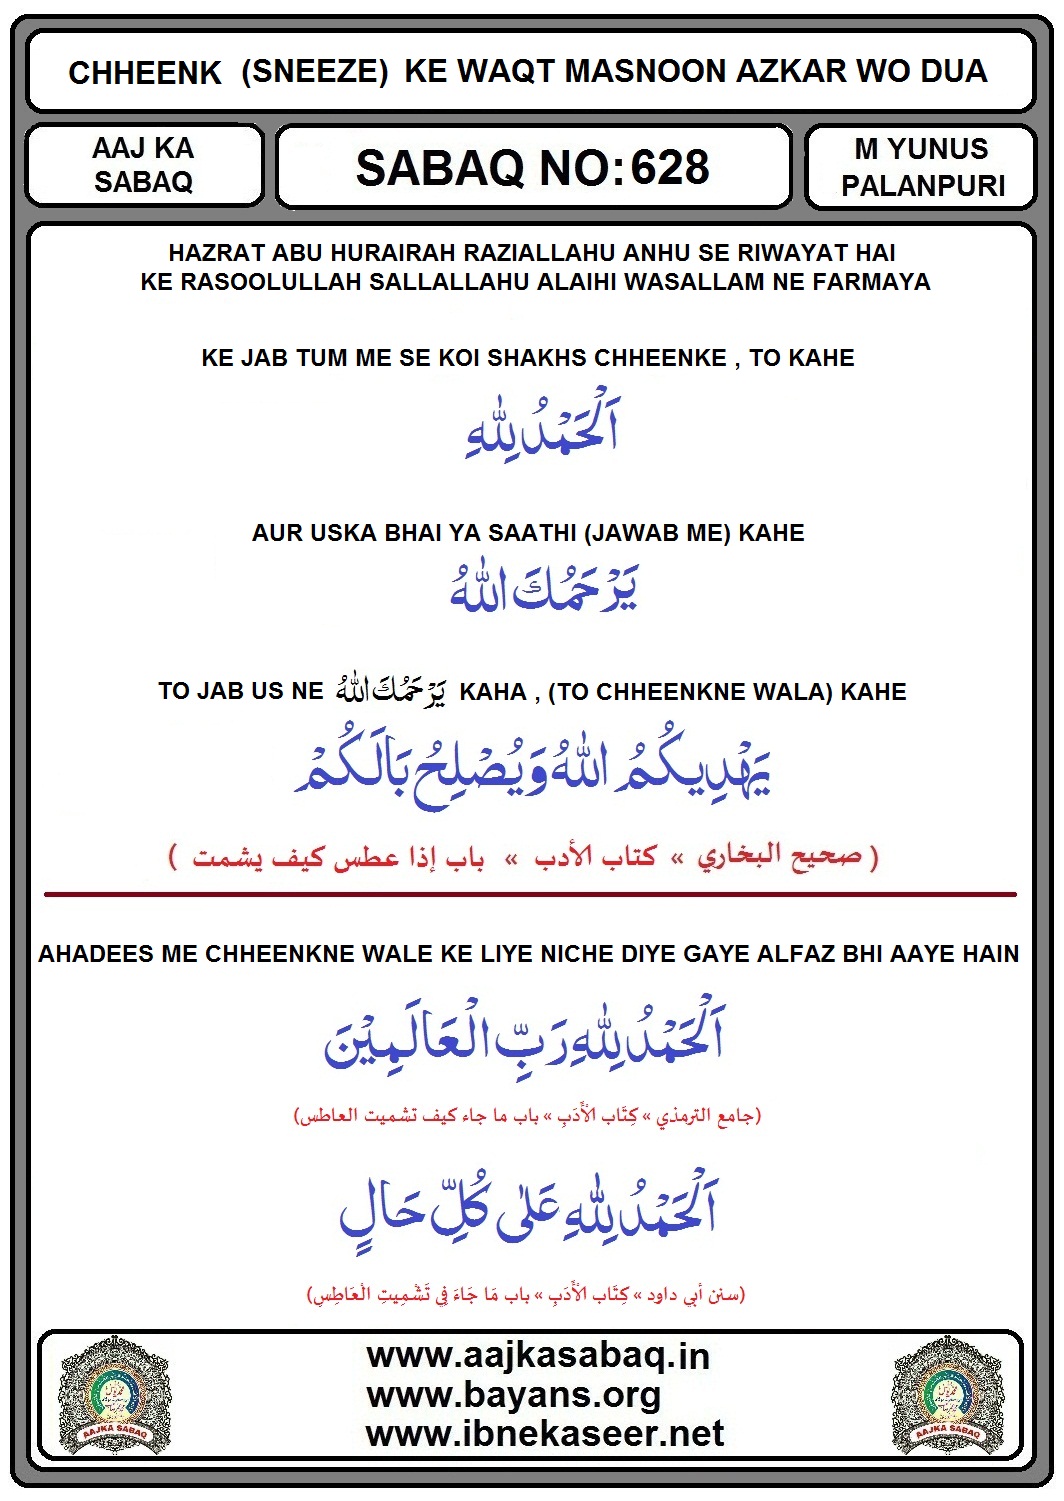 CHHEENK (SNEEZE) KE WAQT MASNOON AZKAR WO DUA
AAJ KA
SABAQ
SABAQ NO:628
M YUNUS
PALANPURI
HAZRAT ABU HURAIRAH RAZIALLAHU ANHU SE RIWAYAT HAI
KE RASOOLULLAH SALLALLAHU ALAIHI WASALLAM NE FARMAYA
KE JAB TUM ME SE KOI SHAKHS CHHEENKE , TO KAHE
اَلْحَمْدُ لِلّٰهِ
AUR USKA BHAI YA SAATHI (JAWAB ME) KAHE
يَرْحَمُكَ اللّٰهُ
TO JAB US NE يَرْحَمُكَ اللّٰهُ KAHA , (TO CHHEENKNE WALA) KAHE
يَهْدِيكُمُ اللّٰهُ وَيُصْلِحُ بَالَكُمْ
( صحيح البخاري » كتاب الأدب » باب إذا عطس كيف يشمت )
AHADEES ME CHHEENKNE WALE KE LIYE NICHE DIYE GAYE ALFAZ BHI AAYE HAIN
اَلْحَمْدُ لِلّٰهِ رَبِّ الْعَالَمِيْنَ
(جامع الترمذي » كِتَاب الْأَدَبِ » باب ما جاء كيف تشميت العاطس)
اَلْحَمْدُ لِلّٰهِ عَلٰى كُلِّ حَالٍ
(سنن أبي داود » كِتَاب الْأَدَبِ » باب مَا جَاءَ فِي تَشْمِيتِ الْعَاطِسِ)
www.aajkasabaq.in
www.bayans.org
www.ibnekaseer.net
AAJKA SABAQ
AAJKA SABAQ